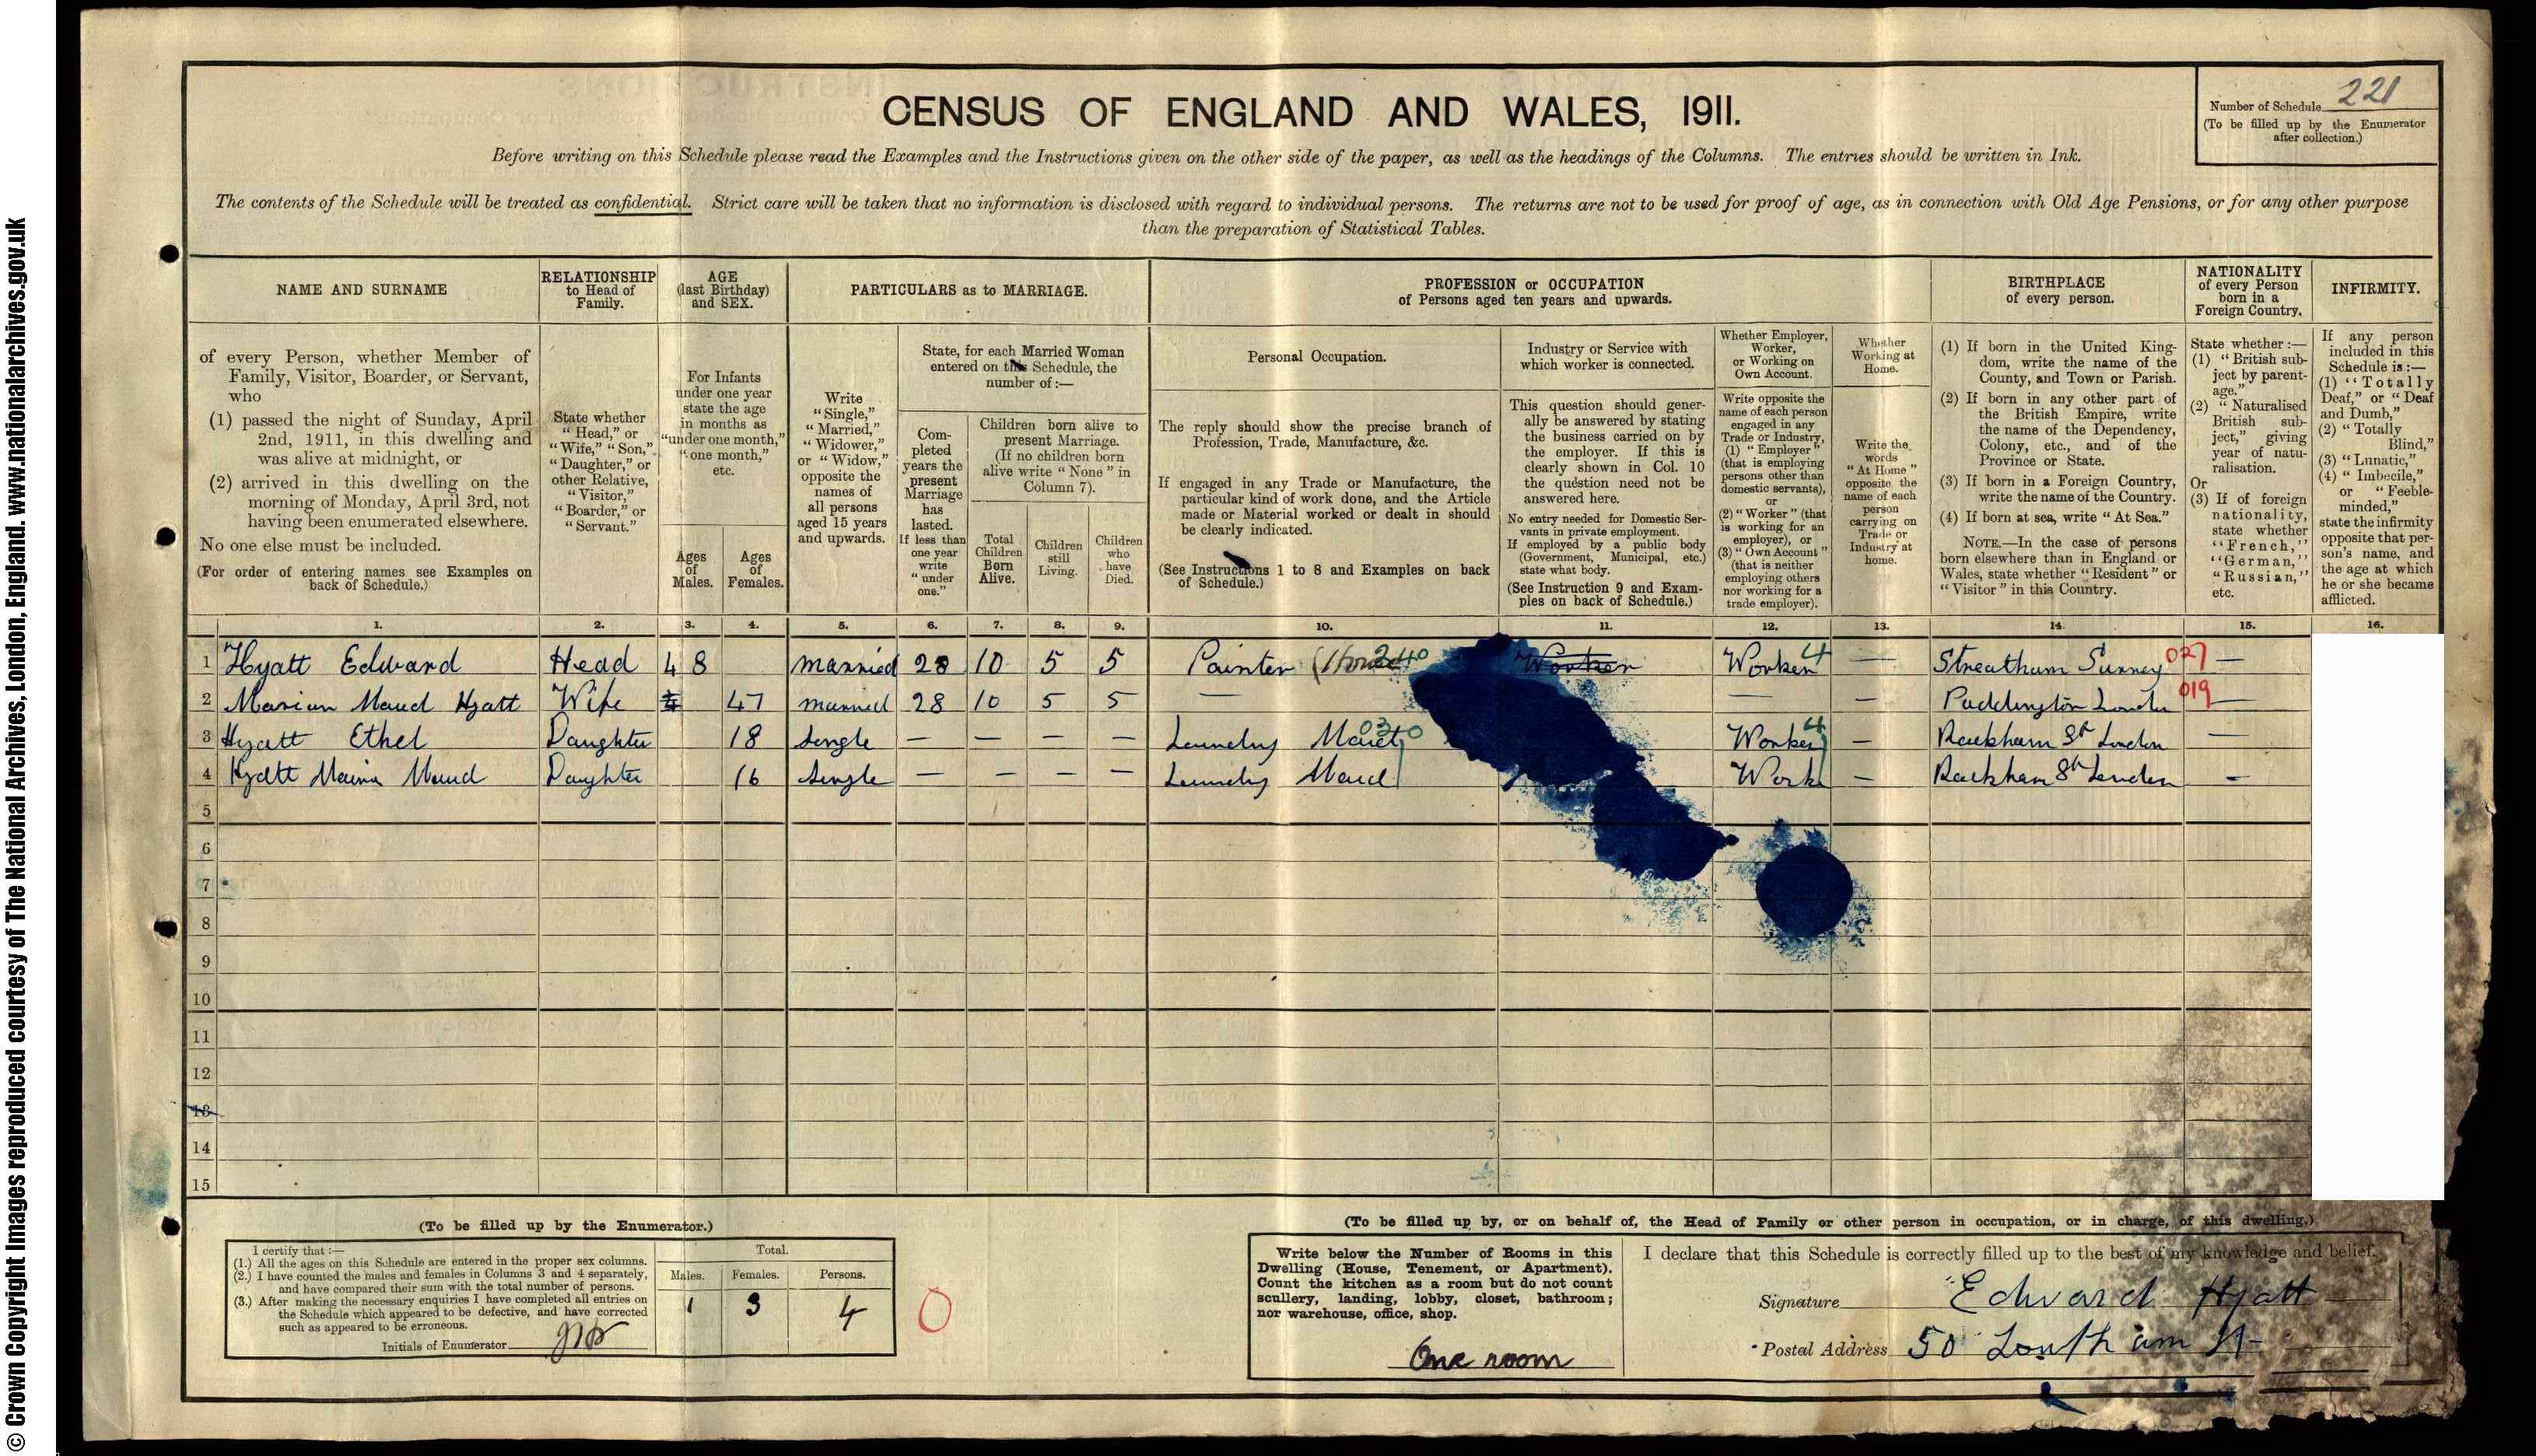 © Crown Copyright Images reproduced courtesy of The National Archives, London, England. www.nationalarchives.gov.uk
CENSUS OF ENGLAND AND WALES, 1911.
Number of Schedule 221
(To be filled up by the Enumerator
after collection.)
Before writing on this Schedule please read the Examples and the Instructions given on the other side of the paper, as well as the headings of the Columns. The entries should be written in Ink.
The contents of the Schedule will be treated as confidential. Strict care will be taken that no information is disclosed with regard to individual persons. The returns are not to be used for proof of age, as in connection with Old Age Pensions, or for any other purpose
than the preparation of Statistical Tables.
NAME AND SURNAME
of every Person, whether Member of
Family, Visitor, Boarder, or Servant,
who
(1) passed the night of Sunday, April
2nd, 1911, in this dwelling and
was alive at midnight, or
(2) arrived in this dwelling on the
morning of Monday, April 3rd, not
having been enumerated elsewhere.
No one else must be included.
(For order of entering names see Examples on
back of Schedule.)
RELATIONSHIP
to Head of
Family.
State whether
"Head," or
"Wife," "Son,"
"Daughter," or
other Relative,
"Visitor,"
"Boarder," or
"Servant."
AGE
(last Birthday)
and SEX.
For Infants
under one year
state the age
in months as
"under one month,"
"one month,"
etc.
Ages
of
Males.
Ages
of
Females.
PARTICULARS as to MARRIAGE.
Write
"Single,"
"Married,"
"Widower,"
or "Widow,"
opposite the
names of
all persons
aged 15 years
and upwards.
State, for each Married Woman
entered on this Schedule, the
number of:—
Com-
pleted
years the
present
Marriage
has
lasted.
If less than
one year
write
"under
one."
Children born alive to
present Marriage.
(If no children born
alive write "None" in
Column 7).
Total
Children
Born
Alive.
Children
still
Living.
Children
who
have
Died.
PROFESSION or OCCUPATION
of Persons aged ten years and upwards.
Personal Occupation.
The reply should show the precise branch of
Profession, Trade, Manufacture, &c.
If engaged in any Trade or Manufacture, the
particular kind of work done, and the Article
made or Material worked or dealt in should
be clearly indicated.
(See Instructions 1 to 8 and Examples on back
of Schedule.)
Industry or Service with
which worker is connected.
This question should gener-
ally be answered by stating
the business carried on by
the employer. If this is
clearly shown in Col. 10
the question need not be
answered here.
No entry needed for Domestic Ser-
vants in private employment.
If employed by a public body
(Government, Municipal, etc.)
state what body.
(See Instruction 9 and Exam-
ples on back of Schedule.)
Whether Employer,
Worker,
or Working on
Own Account.
Write opposite the
name of each person
engaged in any
Trade or Industry,
(1) "Employer"
(that is employing
persons other than
domestic servants),
or
(2) "Worker" (that
is working for an
employer), or
(3) "Own Account"
(that is neither
employing others
nor working for a
trade employer).
Whether
Working at
Home.
Write the
words
"At Home"
opposite the
name of each
person
carrying on
Trade or
Industry at
home.
BIRTHPLACE
of every person.
(1) If born in the United King-
dom, write the name of the
County, and Town or Parish.
(2) If born in any other part of
the British Empire, write
the name of the Dependency,
Colony, etc., and of the
Province or State.
(3) If born in a Foreign Country,
write the name of the Country.
(4) If born at sea, write "At Sea."
NOTE.—In the case of persons
born elsewhere than in England or
Wales, state whether "Resident" or
"Visitor" in this Country.
NATIONALITY
of every Person
born in a
Foreign Country.
State whether:—
(1) "British sub-
ject by parent-
age."
(2) "Naturalised
British sub-
ject," giving
year of natu-
ralisation.
Or
(3) If of foreign
nationality,
state whether
"French,"
"German,"
"Russian,"
etc.
INFIRMITY.
If any person
included in this
Schedule is:—
(1) "Totally
Deaf," or "Deaf
and Dumb,"
(2) "Totally
Blind,"
(3) "Lunatic,"
(4) "Imbecile,"
or "Feeble-
minded,"
state the infirmity
opposite that per-
son's name, and
the age at which
he or she became
afflicted.
1. 2. 3. 4. 5. 6. 7. 8. 9. 10. 11. 12. 13. 14. 15. 16.
1 Hyatt Edward Head 48 married 28 10 5 5 Painter (House 240 Worker Worker 4 — Streatham Surrey 027 —
2 Marian Maud Hyatt Wife 47 married 28 10 5 5 — — — Paddington London 019 —
3 Hyatt Ethel Daughter 18 Single — — — — Laundry Maid 030 Worker 4 — Rackham St London —
4 Hyatt Maud Daughter 16 Single — — — — Laundry Maid Work — Rackham St London —
5
6
7
8
9
10
11
12
13
14
15
(To be filled up by the Enumerator.)
I certify that:—
(1.) All the ages on this Schedule are entered in the proper sex columns.
(2.) I have counted the males and females in Columns 3 and 4 separately,
and have compared their sum with the total number of persons.
(3.) After making the necessary enquiries I have completed all entries on
the Schedule which appeared to be defective, and have corrected
such as appeared to be erroneous.
Initials of Enumerator
Total.
Males. Females. Persons.
1 3 4
0
(To be filled up by, or on behalf of, the Head of Family or other person in occupation, or in charge, of this dwelling.)
Write below the Number of Rooms in this
Dwelling (House, Tenement, or Apartment).
Count the kitchen as a room but do not count
scullery, landing, lobby, closet, bathroom;
nor warehouse, office, shop.
One room
I declare that this Schedule is correctly filled up to the best of my knowledge and belief.
Signature Edward Hyatt
Postal Address 50 Southam St